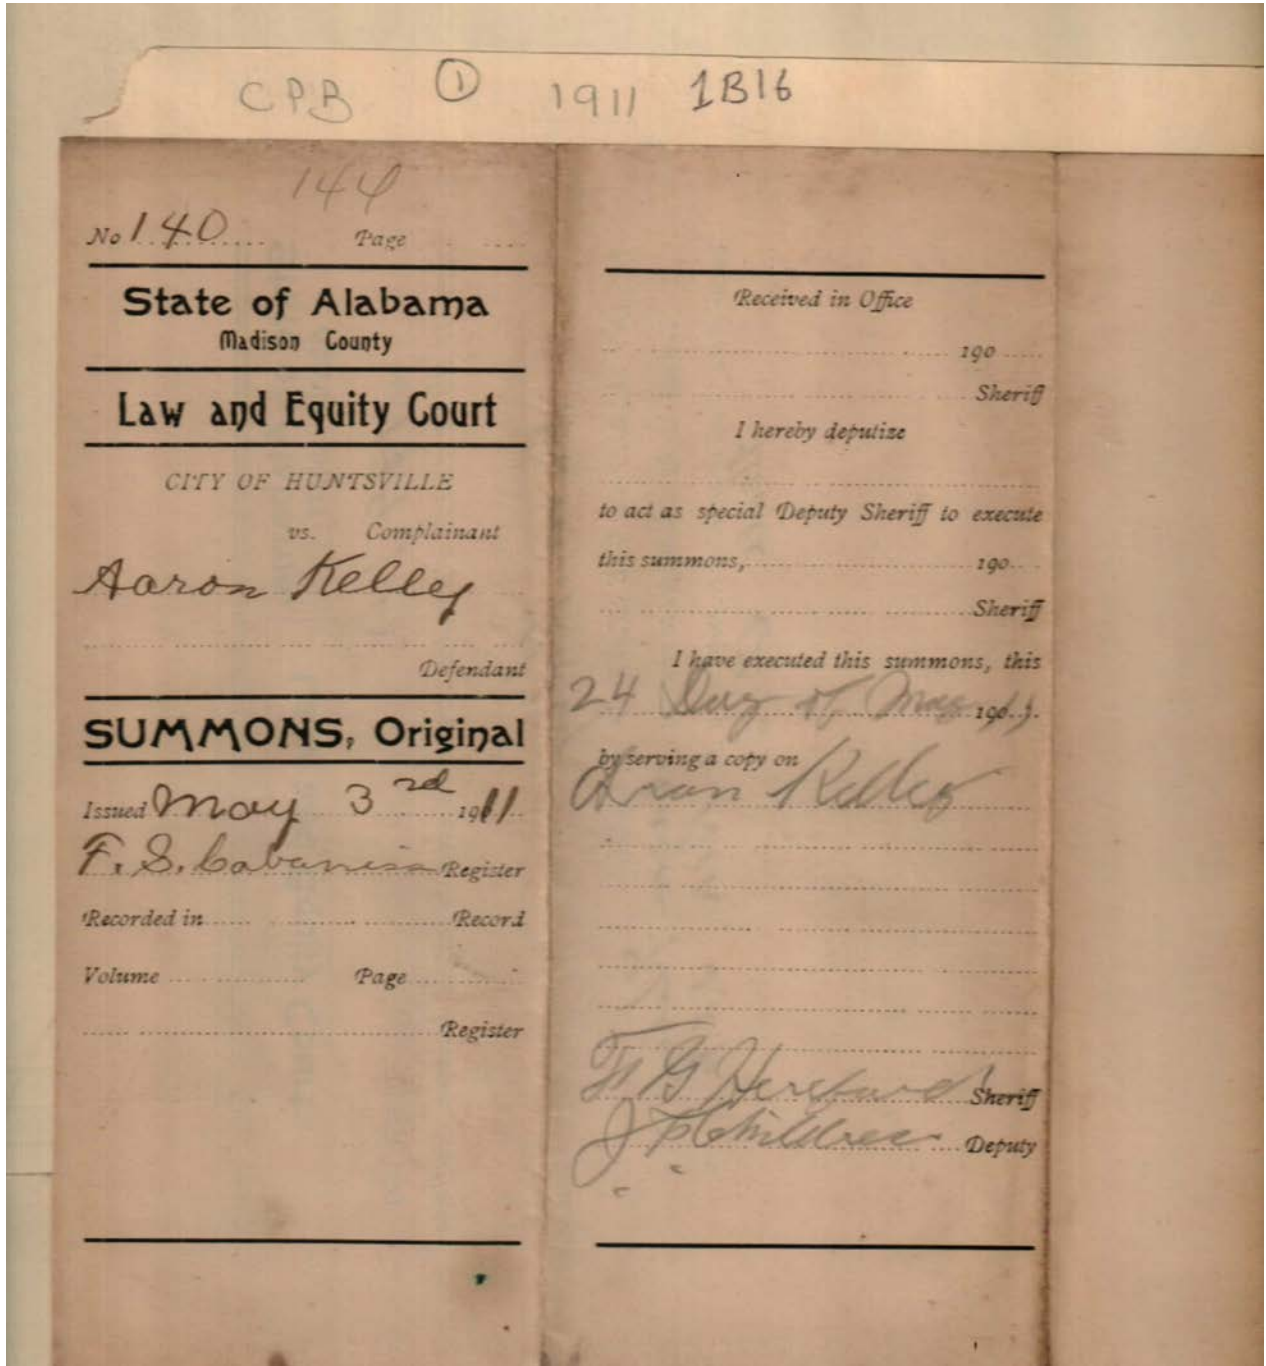 CPB ① 1911 1B16
144
No 140 Page
State of Alabama
Madison County
Law and Equity Court
CITY OF HUNTSVILLE
vs. Complainant
Aaron Kelley
Defendant
SUMMONS, Original
Issued May 3rd 1911
F. S. Cabaniss Register
Recorded in Record
Volume Page
Register
Received in Office
190
Sheriff
I hereby deputize
to act as special Deputy Sheriff to execute
this summons, 190
Sheriff
I have executed this summons, this
24 Day of May 1911.
by serving a copy on
Aron Kelley
Hereford Sheriff
Childress Deputy